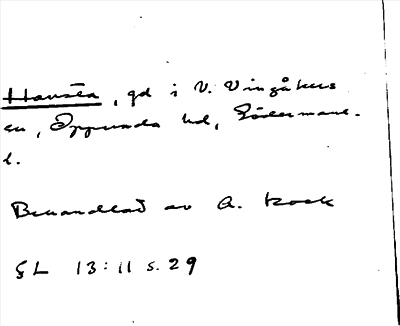 Hansta, gd i V. Vingåkers
sn, Oppunda hd, Söderman-
l.
Behandlat av A. Kock
SL 13:11 s. 29